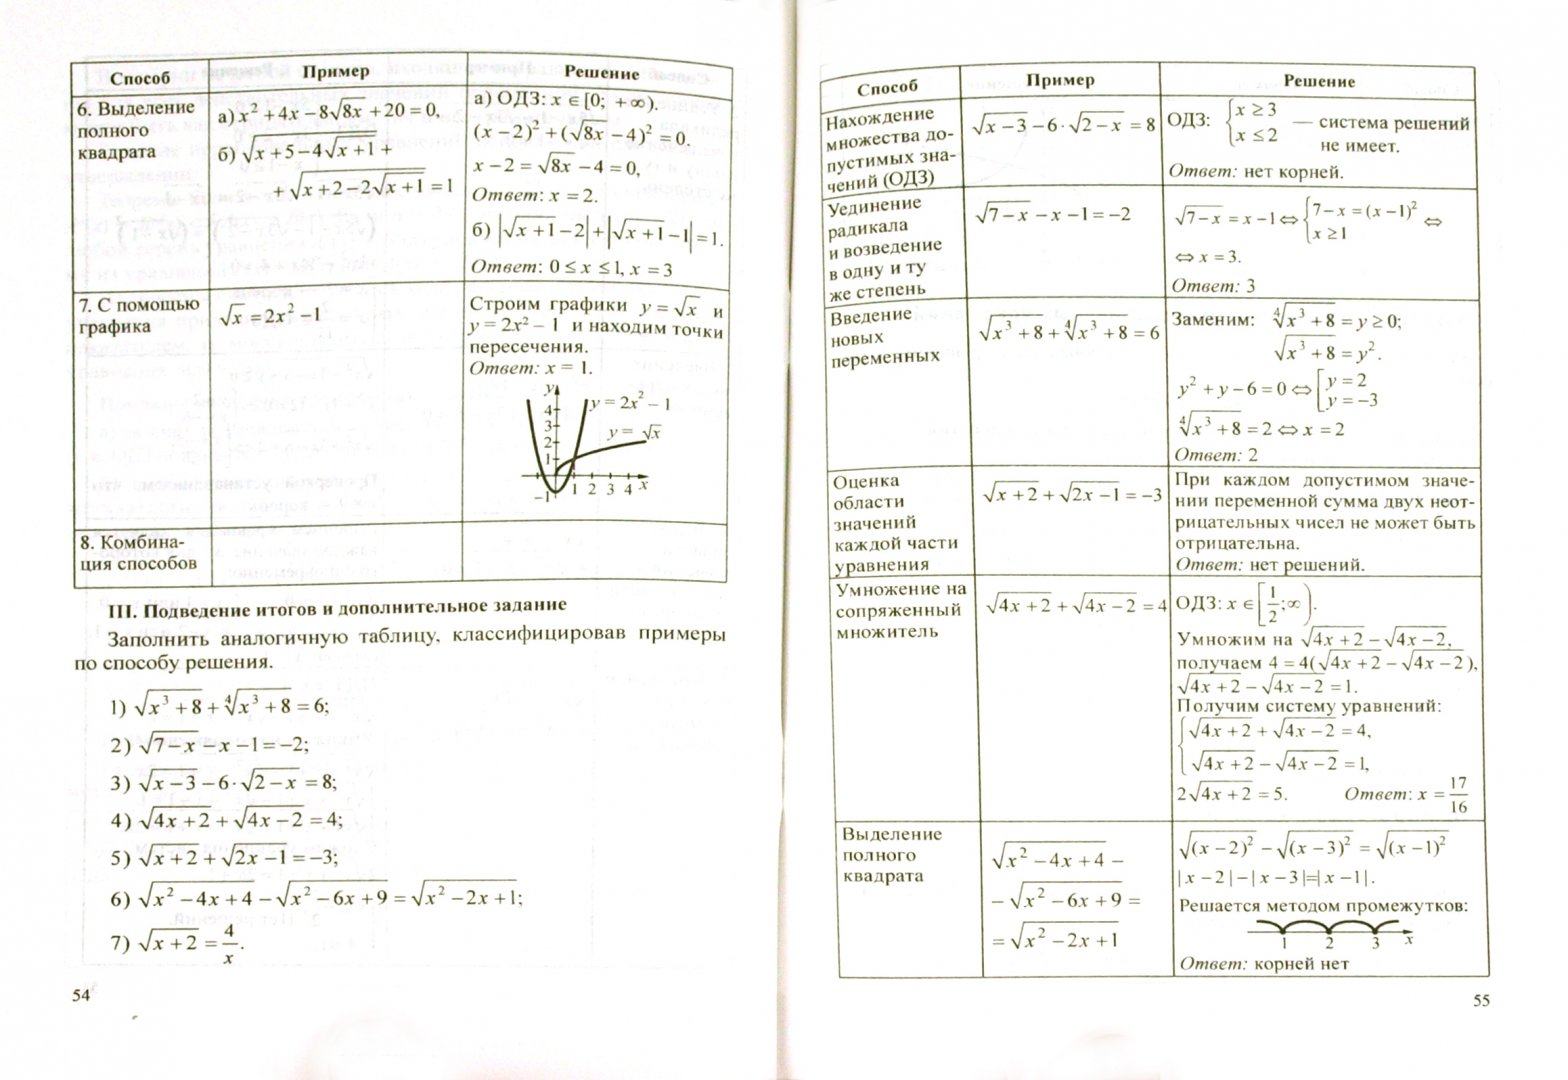 Способ Пример Решение
6. Выделение полного квадрата
а) x² + 4x − 8√(8x) + 20 = 0,
б) √(x + 5 − 4√(x + 1)) +
+ √(x + 2 − 2√(x + 1)) = 1
а) ОДЗ: x ∈ [0; +∞).
(x − 2)² + (√(8x) − 4)² = 0.
x − 2 = √(8x) − 4 = 0,
Ответ: x = 2.
б) |√(x + 1) − 2| + |√(x + 1) − 1| = 1.
Ответ: 0 ≤ x ≤ 1, x = 3
7. С помощью графика
√x = 2x² − 1
Строим графики y = √x и
y = 2x² − 1 и находим точки
пересечения.
Ответ: x = 1.
y
y = 2x² − 1
y = √x
4
3
2
1
−1
1 2 3 4 x
8. Комбина-
ция способов
III. Подведение итогов и дополнительное задание
Заполнить аналогичную таблицу, классифицировав примеры
по способу решения.
1) √(x³ + 8) + ∜(x³ + 8) = 6;
2) √(7 − x) − x − 1 = −2;
3) √(x − 3) − 6 · √(2 − x) = 8;
4) √(4x + 2) + √(4x − 2) = 4;
5) √(x + 2) + √(2x − 1) = −3;
6) √(x² − 4x + 4) − √(x² − 6x + 9) = √(x² − 2x + 1);
7) √(x + 2) = 4/x.
54
Способ Пример Решение
Нахождение
множества до-
пустимых зна-
чений (ОДЗ)
√(x − 3) − 6 · √(2 − x) = 8
ОДЗ: {x ≥ 3
x ≤ 2 — система решений
не имеет.
Ответ: нет корней.
Уединение
радикала
и возведение
в одну и ту
же степень
√(7 − x) − x − 1 = −2
√(7 − x) = x − 1 ⇔ {7 − x = (x − 1)²
x ≥ 1 ⇔
⇔ x = 3.
Ответ: 3
Введение
новых
переменных
√(x³ + 8) + ∜(x³ + 8) = 6
Заменим: ∜(x³ + 8) = y ≥ 0;
√(x³ + 8) = y².
y² + y − 6 = 0 ⇔ [y = 2
y = −3
∜(x³ + 8) = 2 ⇔ x = 2
Ответ: 2
Оценка
области
значений
каждой части
уравнения
√(x + 2) + √(2x − 1) = −3
При каждом допустимом значе-
нии переменной сумма двух неот-
рицательных чисел не может быть
отрицательна.
Ответ: нет решений.
Умножение на
сопряженный
множитель
√(4x + 2) + √(4x − 2) = 4
ОДЗ: x ∈ [1/2; ∞).
Умножим на √(4x + 2) − √(4x − 2),
получаем 4 = 4(√(4x + 2) − √(4x − 2)),
√(4x + 2) − √(4x − 2) = 1.
Получим систему уравнений:
{√(4x + 2) + √(4x − 2) = 4,
√(4x + 2) − √(4x − 2) = 1,
2√(4x + 2) = 5. Ответ: x = 17/16
Выделение
полного
квадрата
√(x² − 4x + 4) −
− √(x² − 6x + 9) =
= √(x² − 2x + 1)
√((x − 2)²) − √((x − 3)²) = √((x − 1)²)
|x − 2| − |x − 3| = |x − 1|.
Решается методом промежутков:
1 2 3 x
Ответ: корней нет
55